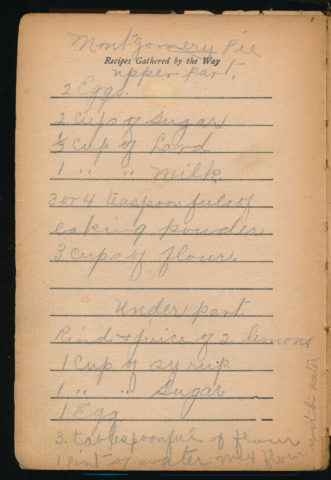 Montgomery Pie
Recipes Gathered by the Way
upper part.
2 Eggs.
2 cups of Sugar
½ cup of Lard
1 " " milk
3 or 4 teaspoonfuls of
baking powder
3 cups of flour
Under part.
Rind & juice of 2 lemons
1 Cup of syrup.
1 " " Sugar
1 Egg
3. tablespoonful of flour
1 pint of water mix flour
with water